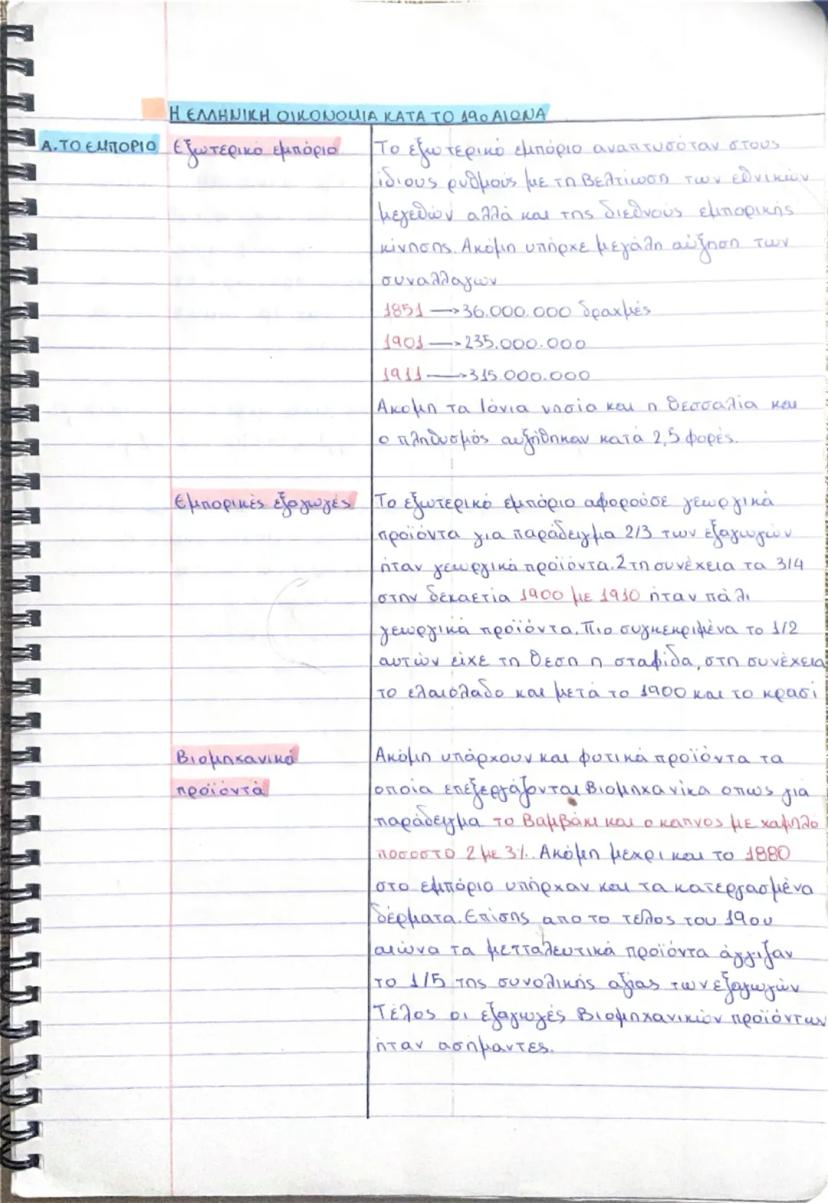 Η ΕΛΛΗΝΙΚΗ ΟΙΚΟΝΟΜΙΑ ΚΑΤΑ ΤΟ 19ο ΑΙΩΝΑ
Α. ΤΟ ΕΜΠΟΡΙΟ
Εξωτερικό εμπόριο
Το εξωτερικό εμπόριο αναπτυσόταν στους
ίδιους ρυθμούς με τη βελτίωση των εθνικών
μεγεθών αλλά και της διεθνούς εμπορικής
κίνησης. Ακόμη υπήρχε μεγάλη αύξηση των
συναλλαγων
1851 → 36.000.000 δραχμές
1901 → 235.000.000
1911 → 315.000.000
Ακομη τα Ιόνια νησία και η Θεσσαλία και
ο πληθυσμός αυξήθηκαν κατά 2,5 φορές.
Εμπορικές εξαγωγές
Το εξωτερικό εμπόριο αφορούσε γεωργικά
προϊόντα για παράδειγμα 2/3 των εξαγωγών
ήταν γεωργικά προϊόντα. Στη συνέχεια τα 3/4
στην δεκαετία 1900 με 1910 ήταν πάλι
γεωργικά προϊόντα. Πιο συγκεκριμένα το 1/2
αυτών είχε τη θεση η σταφίδα, στη συνέχεια
το ελαιόλαδο και μετά το 1900 και το κρασί
Βιομηχανικά
προϊόντα
Ακόμη υπάρχουν και φυτικά προϊόντα τα
οποία επεξεργάζονται βιομηχανικα οπως για
παράδειγμα το βαμβάκι και ο καπνος με χαμηλο
ποσοστο 2 με 3%. Ακόμη μεχρι και το 1880
στο εμπόριο υπήρχαν και τα κατεργασμένα
δέρματα. Επίσης απο το τέλος του 19ου
αιώνα τα μετταλευτικά προϊόντα άγγιζαν
το 1/5 της συνολικής αξίας των εξαγωγών
Τέλος οι εξαγωγές βιομηχανικών προϊόντων
ήταν ασήμαντες.